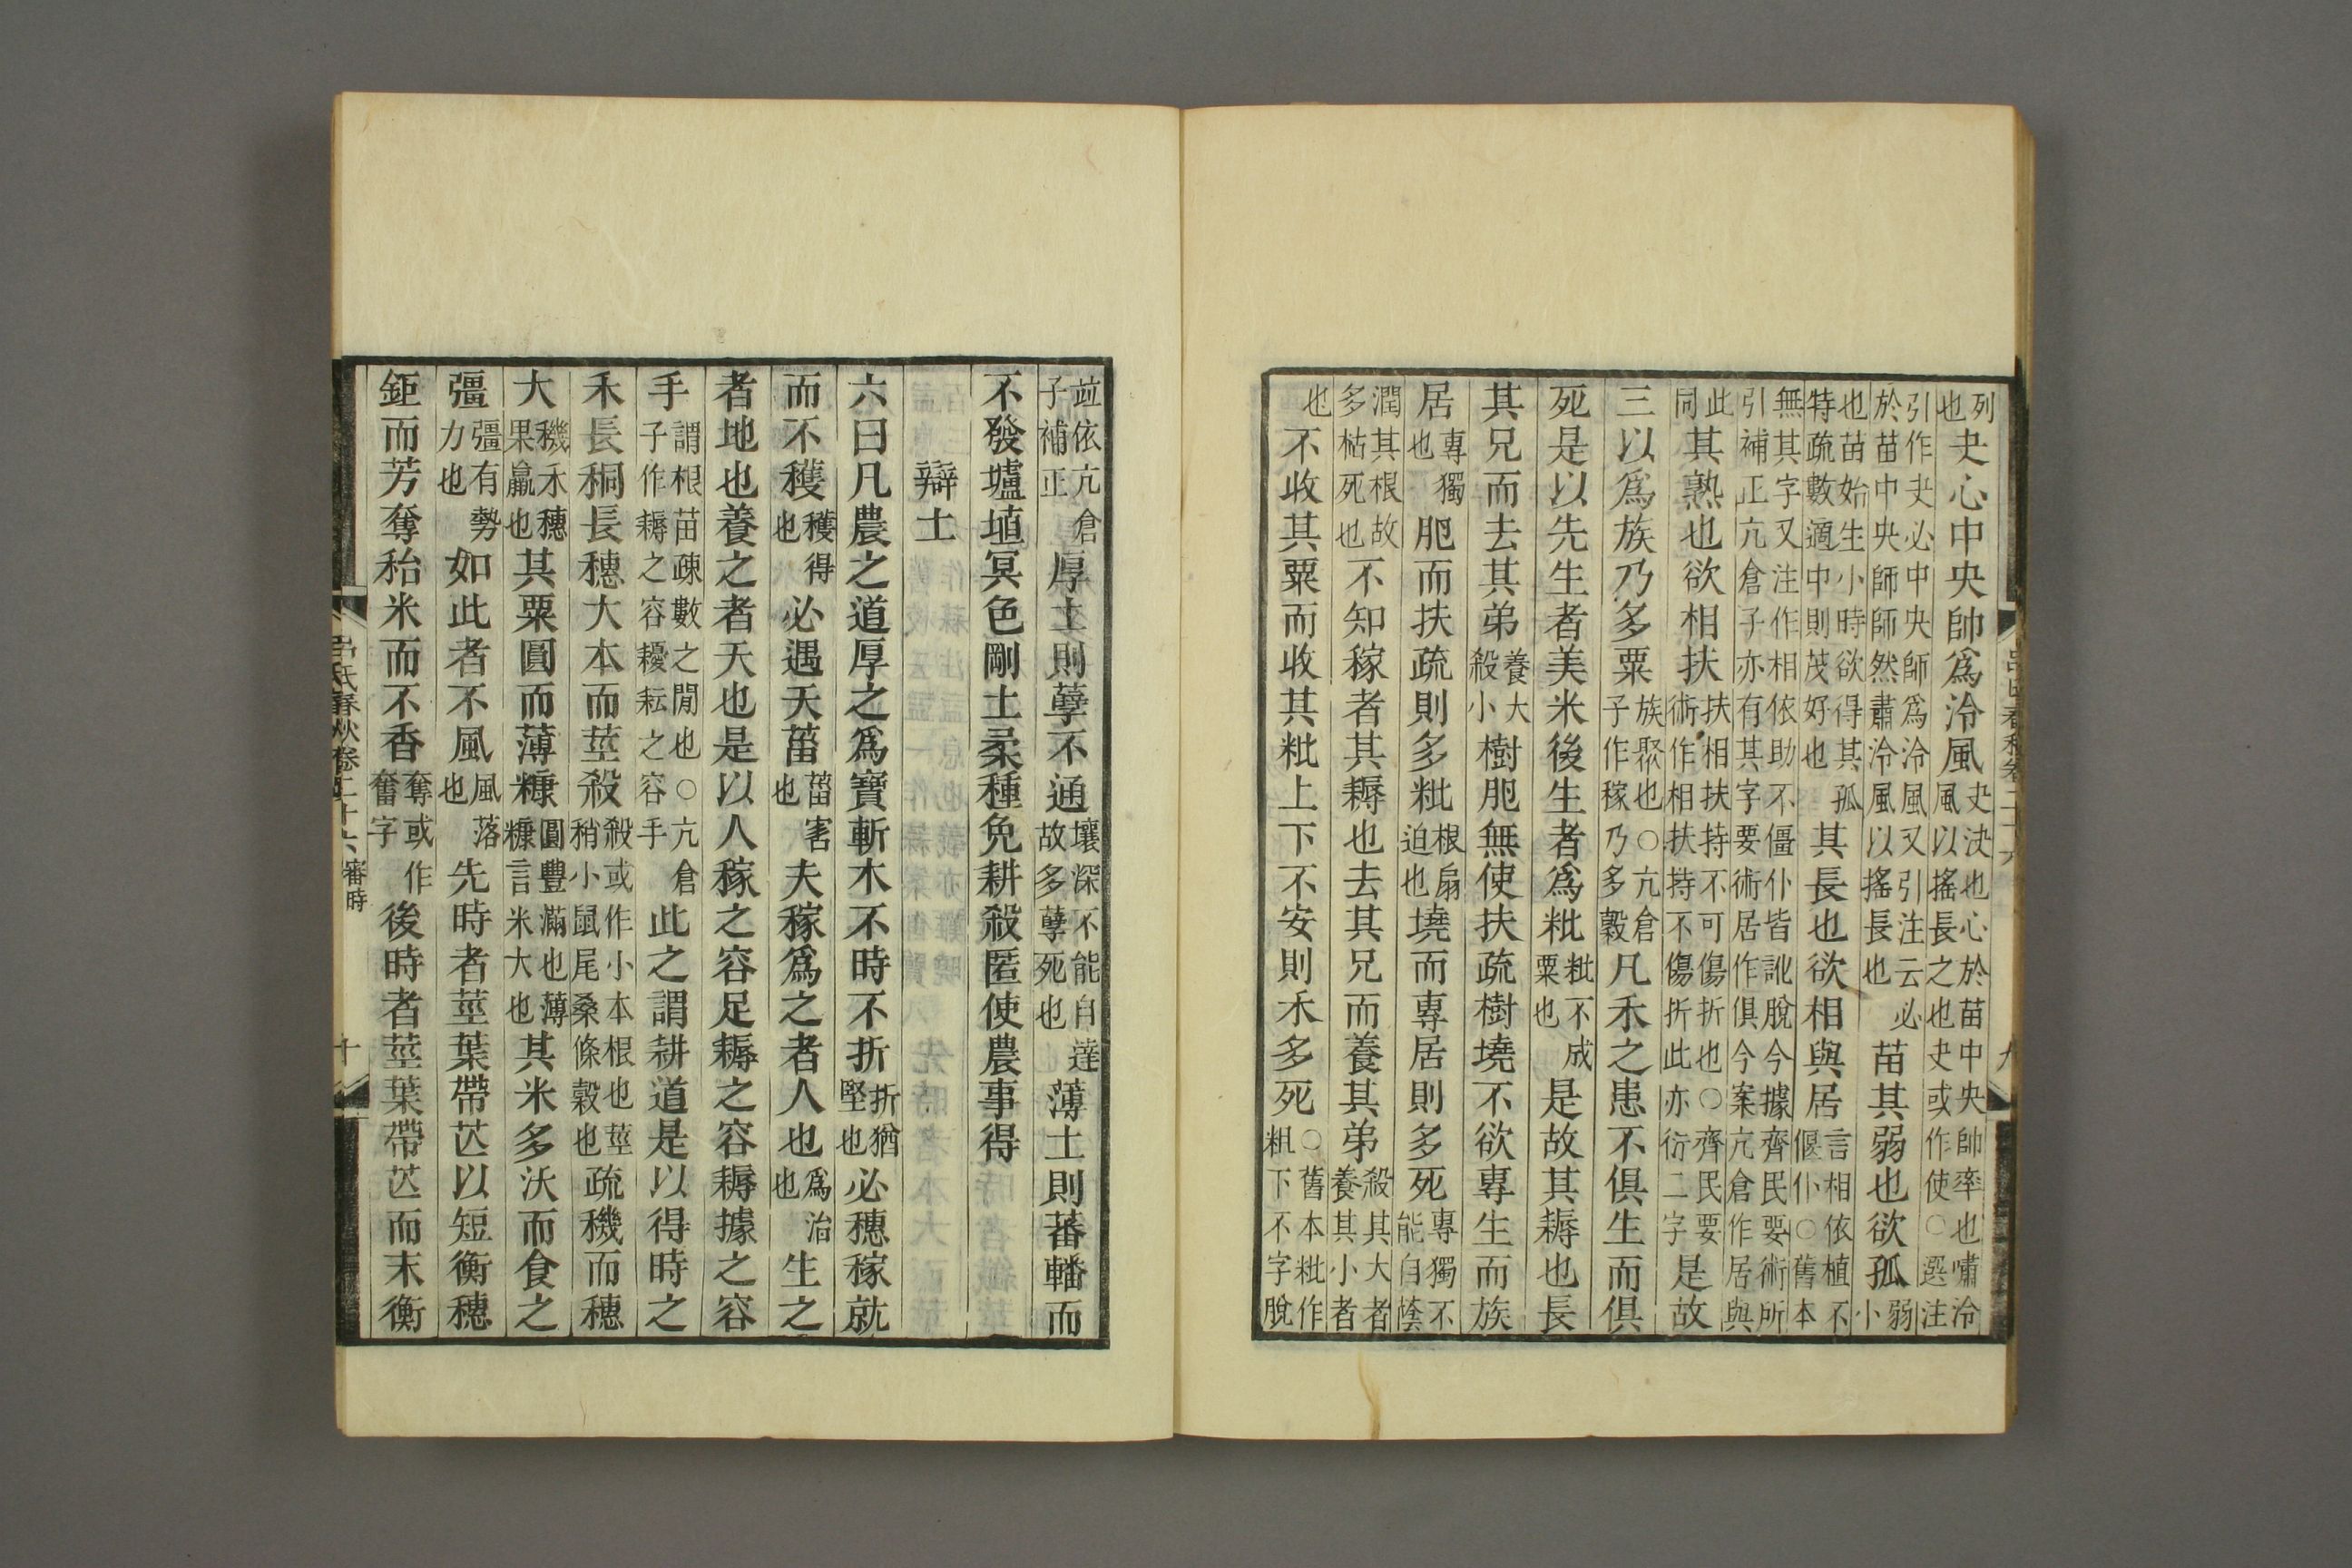 列也夬心中央帥爲泠風夬決也心於苗中央帥率也嘯泠風以搖長之也夬或作使○選注
引作夬必中央師爲泠風又引注云必於苗中央師師然肅泠風以搖長也苗其弱也欲孤弱小
也苗始生小時欲得其孤特疏數適中則茂好也其長也欲相與居言相依植不偃仆○舊本
無其字又注作相依助不僵仆皆訛脫今據齊民要術所引補正亢倉子亦有其字要術居作俱今案亢倉作居與
此同其熟也欲相扶扶相扶持不可傷折也○齊民要術作相扶持不傷折此亦衍二字是故
三以爲族乃多粟族聚也○亢倉子作稼乃多穀凡禾之患不俱生而俱
死是以先生者美米後生者爲粃粃不成粟也是故其耨也長
其兄而去其弟養大殺小樹肥無使扶疏樹墝不欲專生而族
居專獨也肥而扶疏則多粃根扇迫也墝而專居則多死專獨不能自蔭
潤其根故多枯死也不知稼者其耨也去其兄而養其弟殺其大者養其小者
也不收其粟而收其粃上下不安則禾多死○舊本粃作粗下不字脫
呂氏春秋卷二十六
九
竝依亢倉子補正厚土則孽不通壤深不能自達故多孽死也薄土則蕃轓而
不發壚埴冥色剛土柔種免耕殺匿使農事得
辯土
六曰凡農之道厚之爲寶斬木不時不折折猶堅也必穗稼就
而不穫穫得也必遇天菑菑害也夫稼爲之者人也爲治也生之
者地也養之者天也是以人稼之容足耨之容耨據之容
手謂根苗疎數之閒也○亢倉子作耨之容耰耘之容手此之謂耕道是以得時之
禾長秱長穗大本而莖殺殺或作小本根也莖稍小鼠尾桑條穀也疏穖而穗
大穖禾穗果羸也其粟圓而薄糠圓豐滿也薄糠言米大也其米多沃而食之
彊彊有勢力也如此者不風風落也先時者莖葉帶芒以短衡穗
鉅而芳奪秮米而不香奪或作奮字後時者莖葉帶芒而末衡
呂氏春秋卷二十六 審時
十